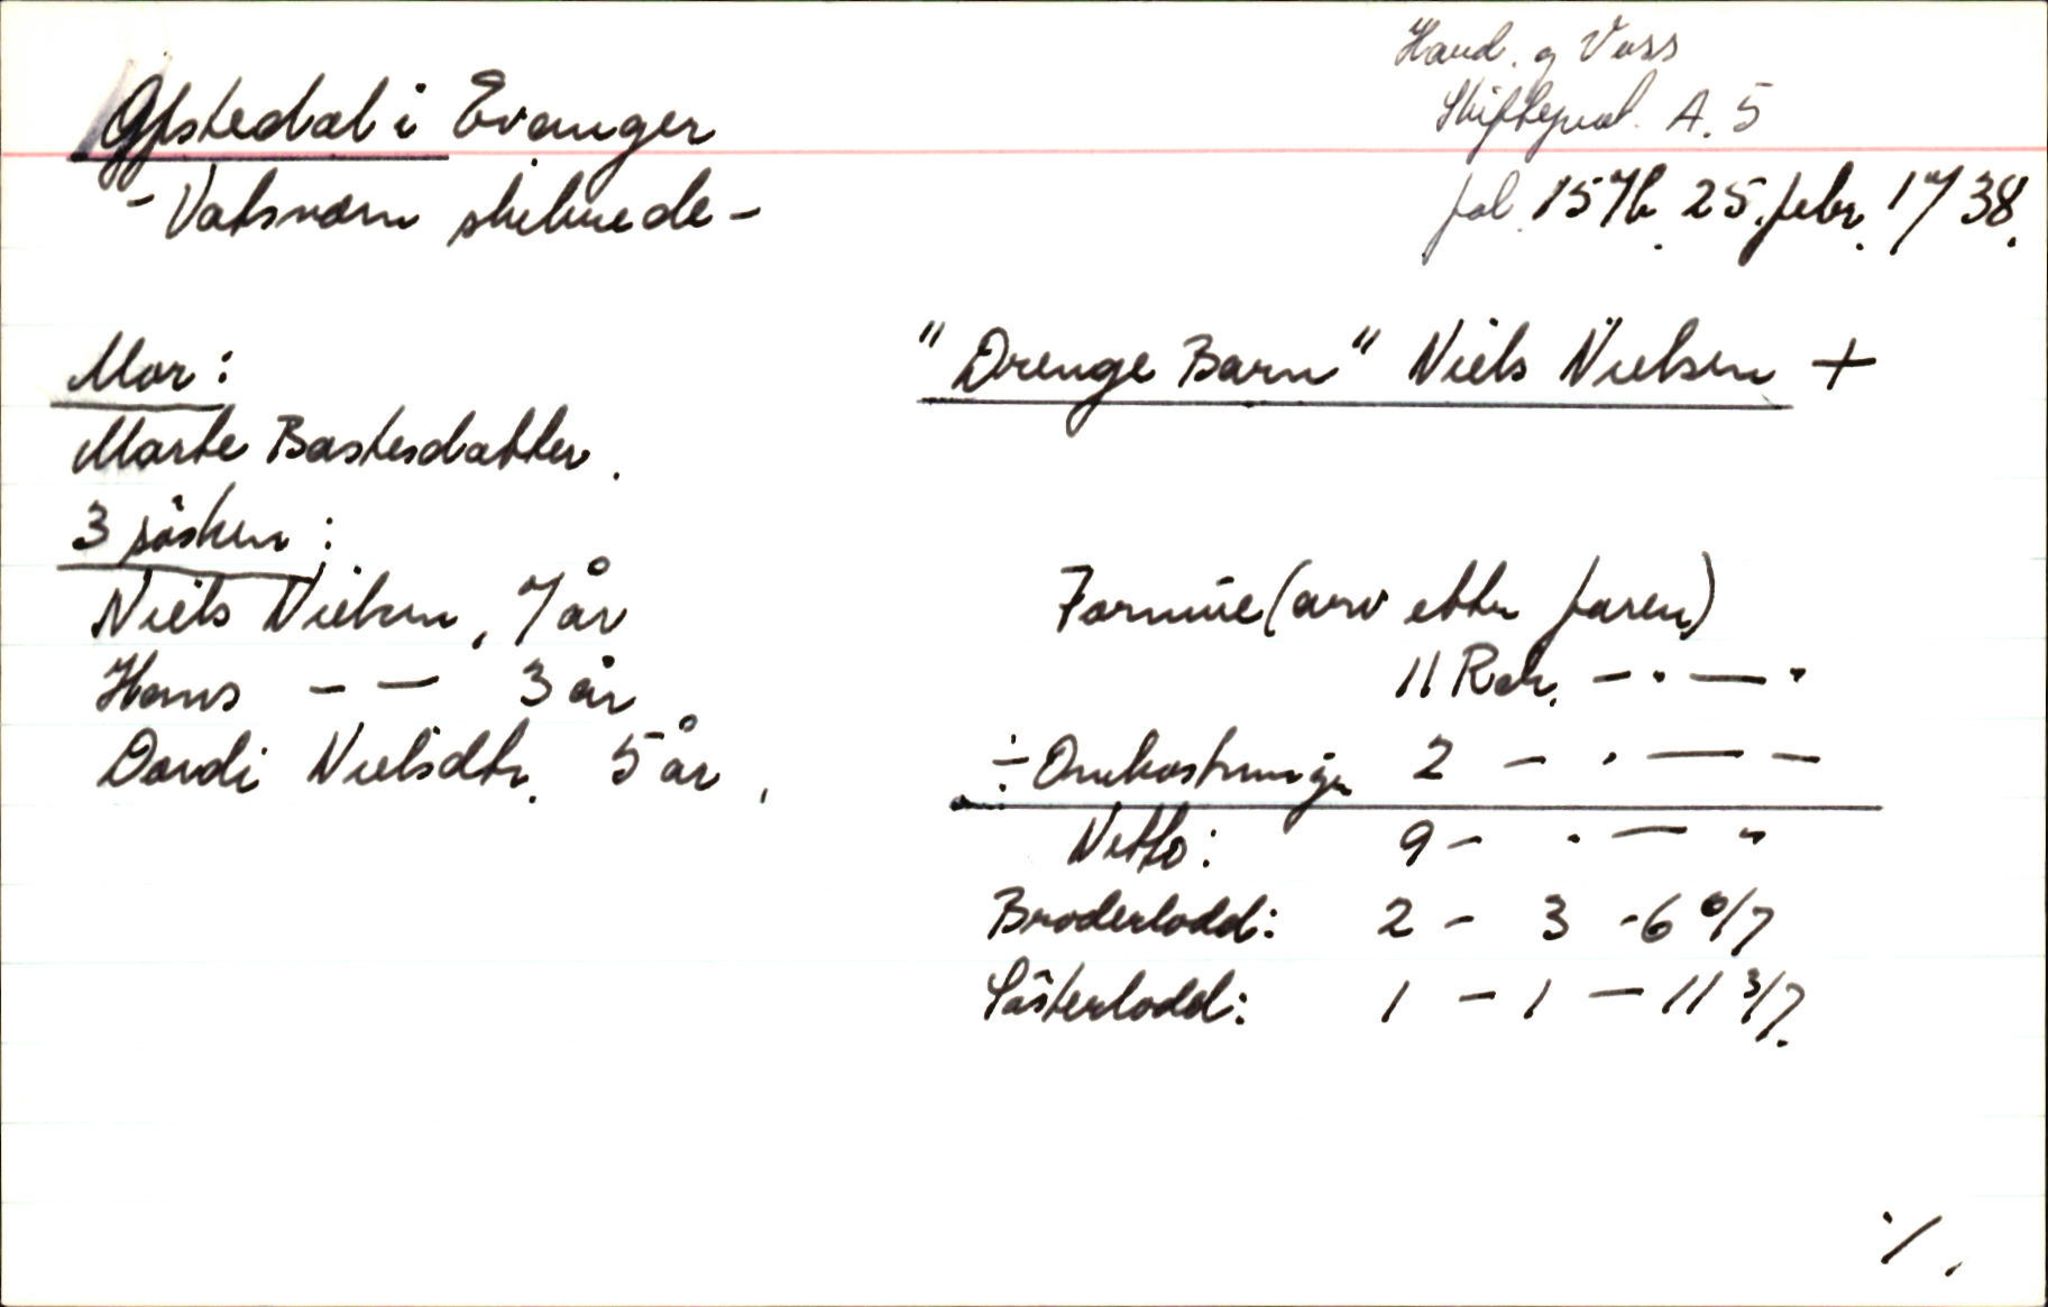 Hard. og Voss
Skifteprot. A. 5
fol. 157b. 25. febr. 1738.
Gjstedal i Evanger
- Vatsværn skibrede -
"Drenge Barn" Niels Nielsen +
Mor:
Marte Bastesdatter.
3 søsken:
Niels Nielsen, 7 år
Hans - — 3 år
Dordi Nielsdtr. 5 år,
Formue (arv etter faren)
11 Rdr. - . — .
÷ Omkostninger 2 - . — -
Netto: 9 - . — "
Broderlodd: 2 - 3 - 6 6/7
Søsterlodd: 1 - 1 — 11 3/7.
·/.